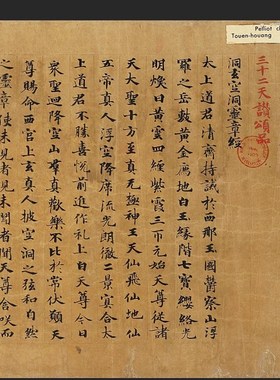 Pelliot ch
Touen-houang
三十二天頌品
洞玄空洞靈章經
太上道君清齋持誡於西那玉國鬱察山浮
羅之岳黃金爲地白玉緣階七寶纓絡光
明煥日黃雲四纏紫霞三帀元始天尊從諸
天大聖十方至真无極神王天仙飛仙地仙
五帝真人浮空降席流光朗徹二景冥合太
上道君不勝喜悅前進作礼上白天尊今日
衆聖迴降空山羣真歡樂不比於常伏願天
尊賜命西宮上玄真人披空洞之弦和自然
之靈章使未見者見未聞者聞天尊含咲而